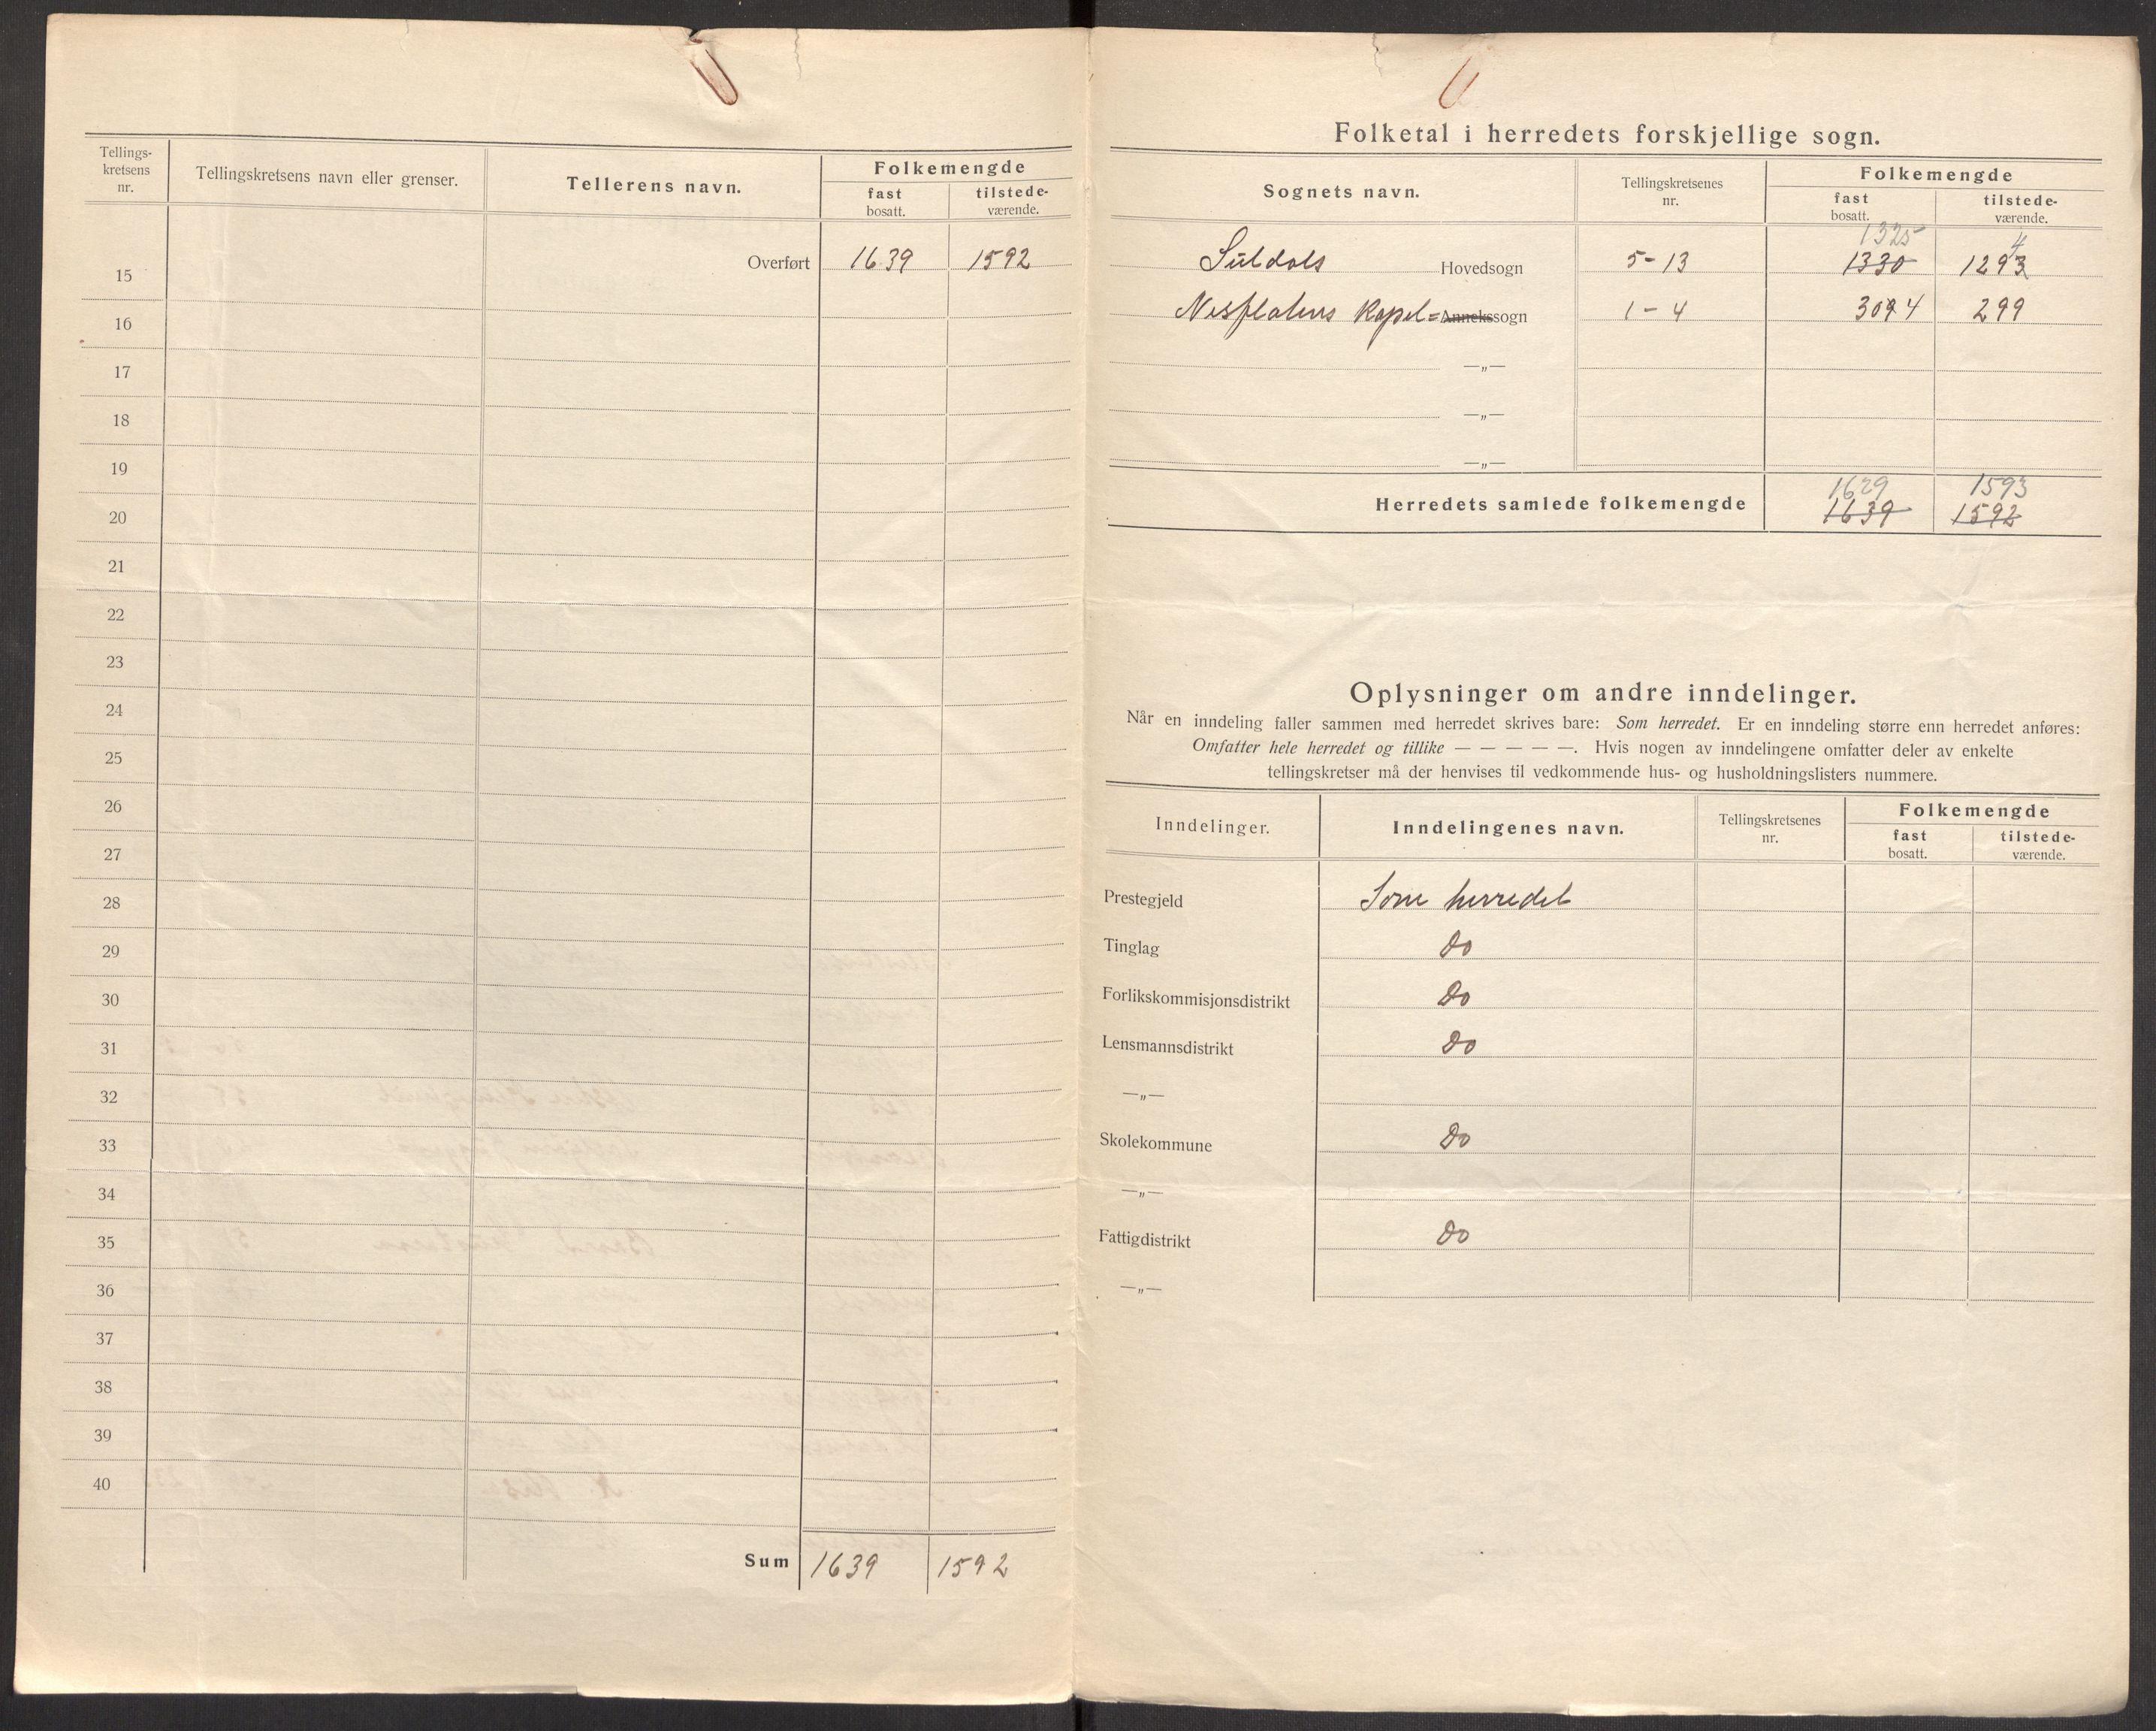 Tellings-
kretsens
nr.
Tellingskretsens navn eller grenser.
Tellerens navn.
Folkemengde
fast
bosatt.
tilstede-
værende.
Overført 1639 1592
15
16
17
18
19
20
21
22
23
24
25
26
27
28
29
30
31
32
33
34
35
36
37
38
39
40
Sum 1639 1592
Folketal i herredets forskjellige sogn.
Sognets navn.
Tellingskretsenes
nr.
Folkemengde
fast
bosatt.
tilstede-
værende.
1325 4
Suldals Hovedsogn 5-13 1330 1293
Nesflatens Kapel= Annekssogn 1-4 3094 299
—„—
—„—
—„—
1629 1593
Herredets samlede folkemengde 1639 1592
Oplysninger om andre inndelinger.
Når en inndeling faller sammen med herredet skrives bare: Som herredet. Er en inndeling større enn herredet anføres:
Omfatter hele herredet og tillike — — — — —. Hvis nogen av inndelingene omfatter deler av enkelte
tellingskretser må der henvises til vedkommende hus- og husholdningslisters nummere.
Inndelinger.
Inndelingenes navn.
Tellingskretsenes
nr.
Folkemengde
fast
bosatt.
tilstede-
værende.
Prestegjeld Som herredet
Tinglag Do
Forlikskommisjonsdistrikt Do
Lensmannsdistrikt Do
—„—
Skolekommune Do
—„—
Fattigdistrikt Do
—„—